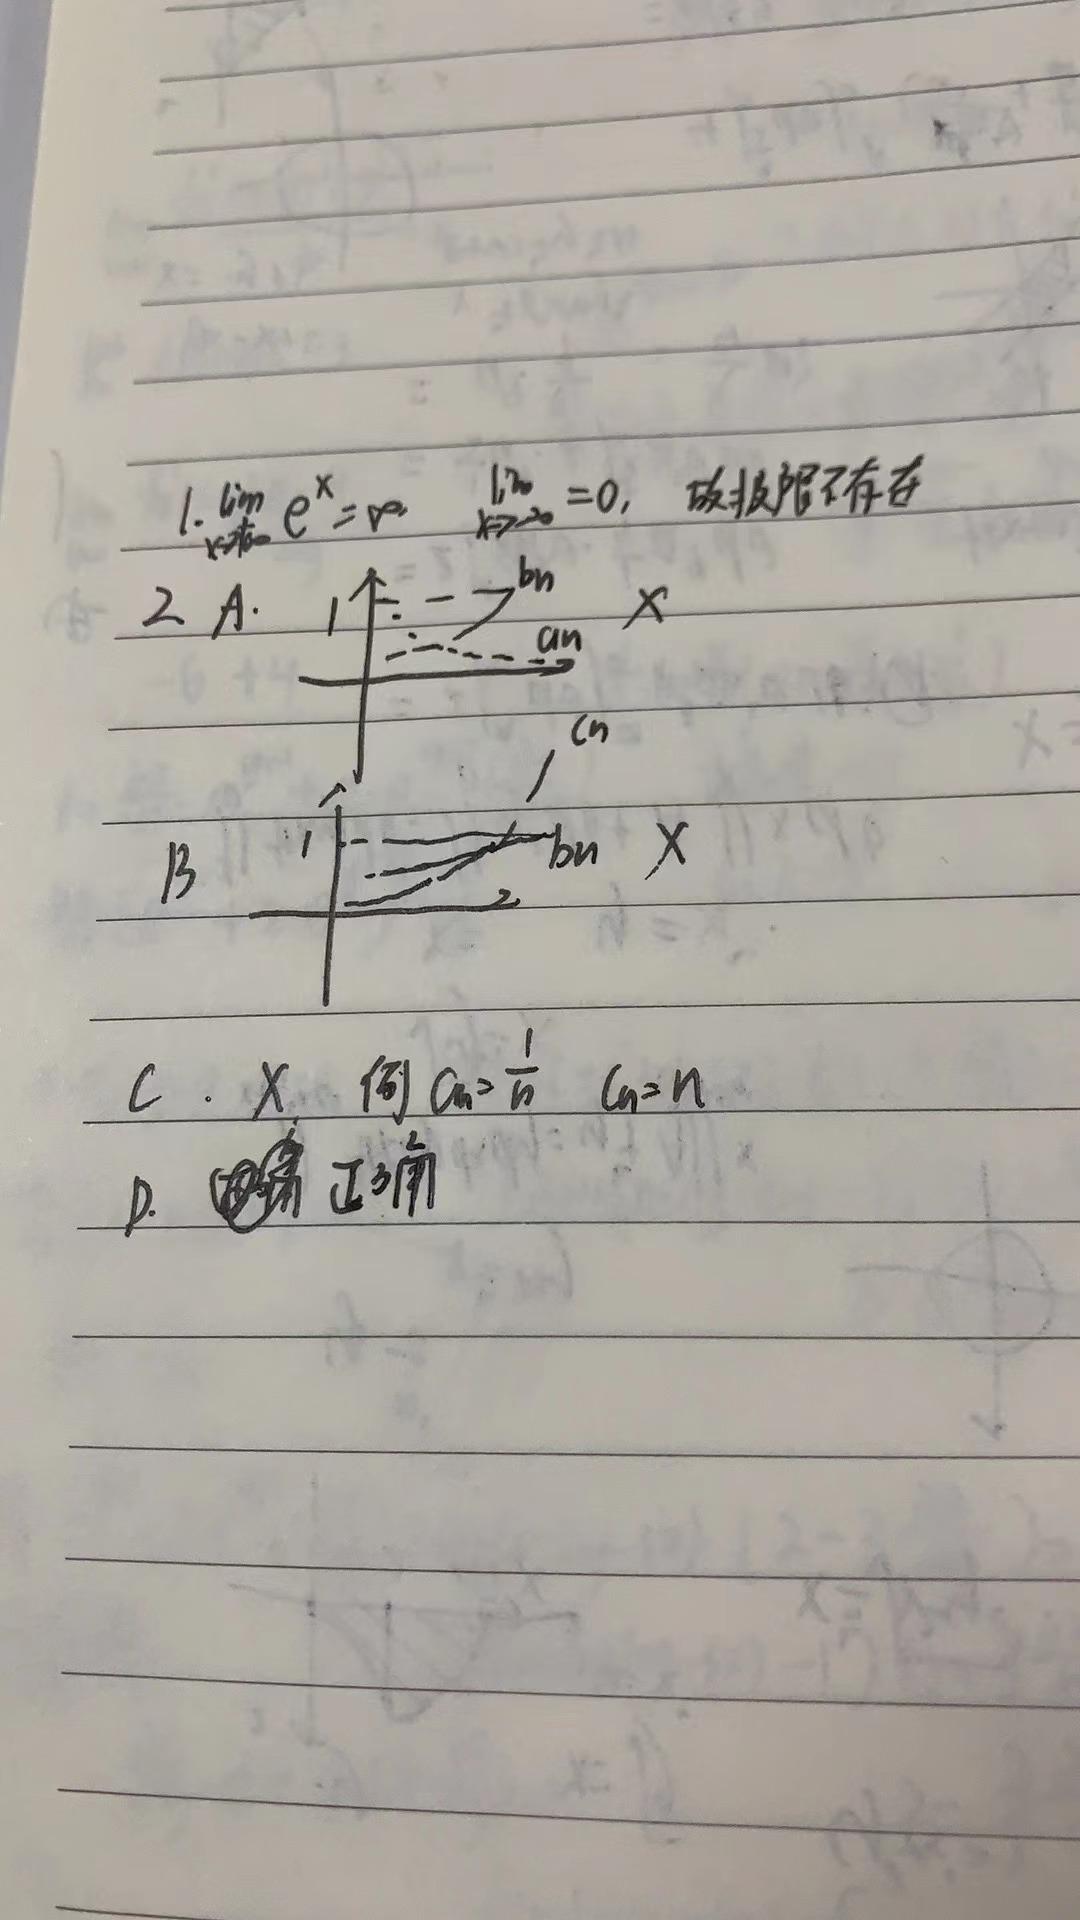 1. lim x→+∞ e^x = ∞ lim x→-∞ = 0, 故极限不存在
2 A. 1 bn an X
cn
B 1 bn X
C. X, 例 an = 1/n cn = n
D. 正确